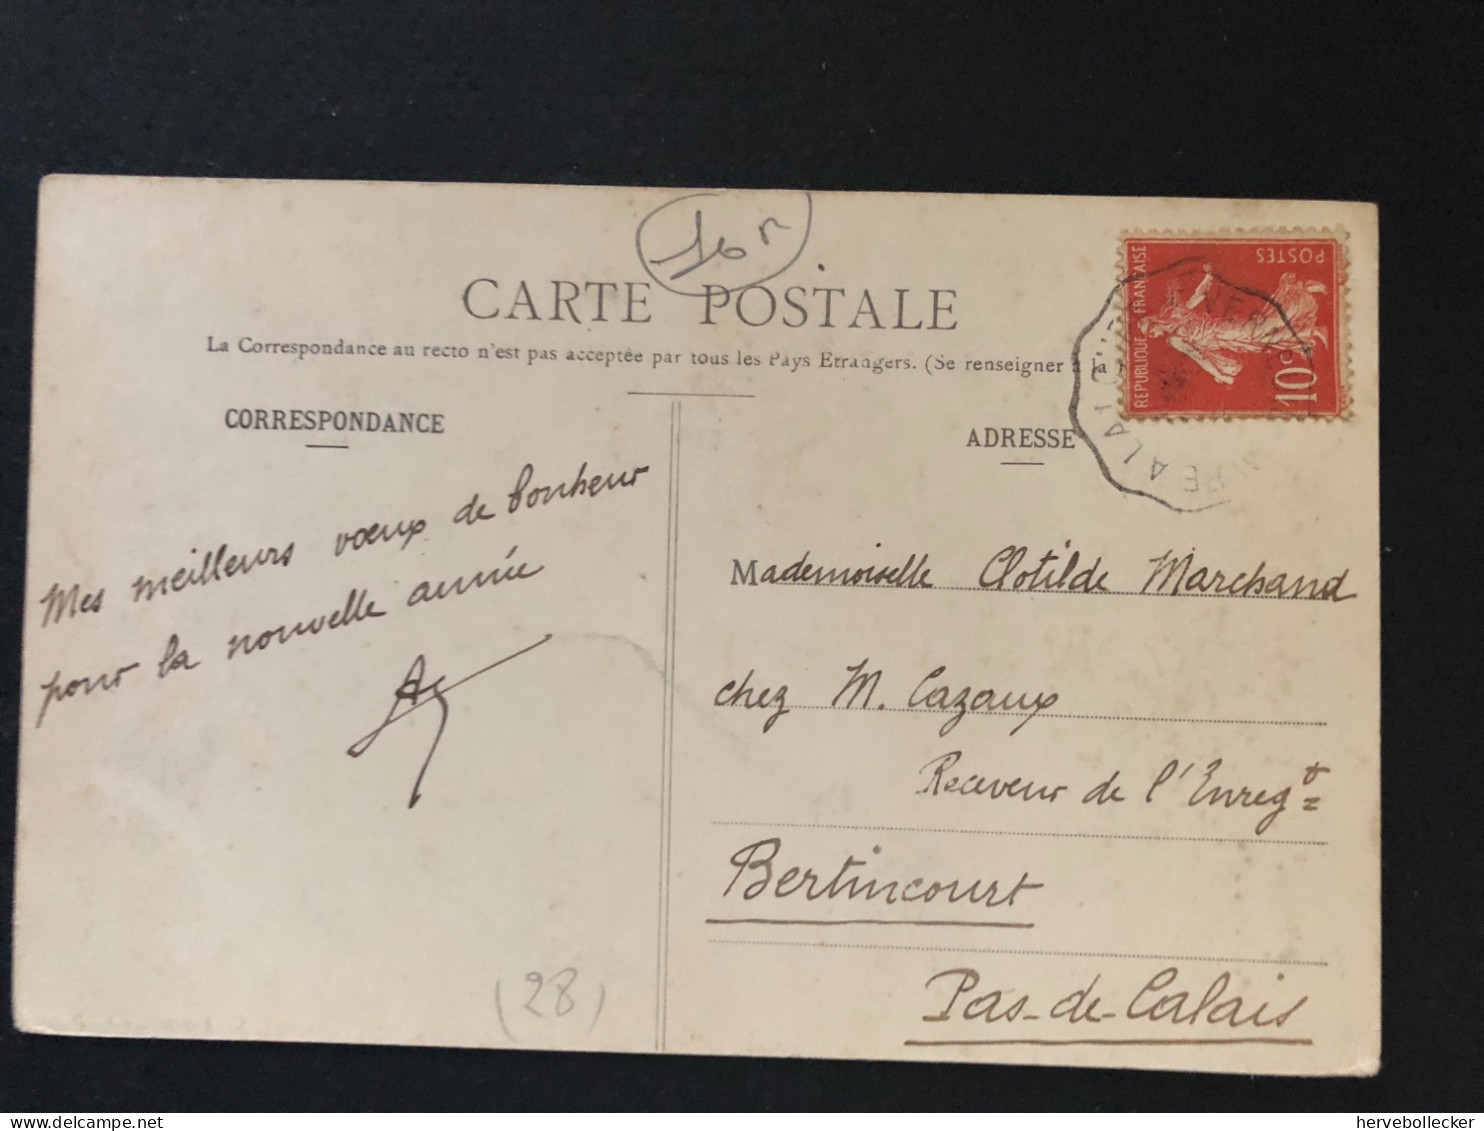 16 n
CARTE POSTALE
La Correspondance au recto n'est pas acceptée par tous les Pays Étrangers. (Se renseigner à la
CORRESPONDANCE
ADRESSE
REPUBLIQUE FRANÇAISE
POSTES
10c
Mes meilleurs vœux de bonheur
pour la nouvelle année
Mademoiselle Clotilde Marchand
chez M. Cazaux
Receveur de l'Enregt
Bertincourt
Pas-de-Calais
(28)
hervebollecker